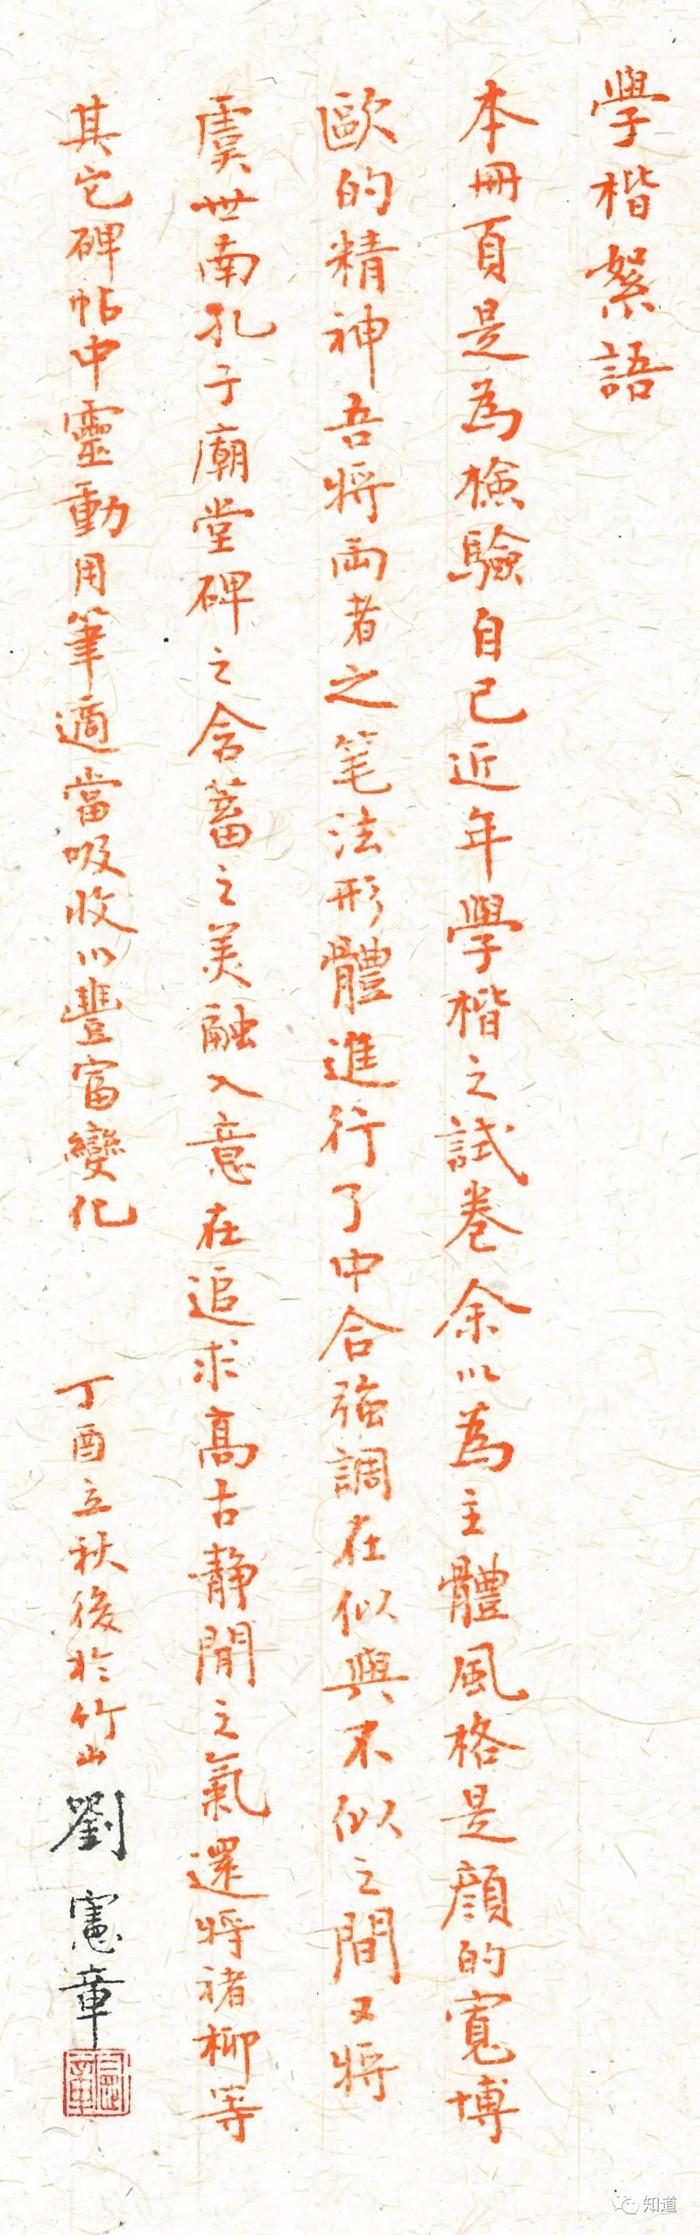 學楷絮語
本冊頁是為檢驗自己近年學楷之試卷余以為主體風格是顔的寬博
歐的精神吾將兩者之笔法形體進行了中合強調在似與不似之間又將
虞世南孔子廟堂碑之含蓄之美融入意在追求高古静閒之氣還將褚柳等
其它碑帖中靈動用筆適當吸收以豐富變化
丁酉立秋後於竹山劉憲章
知道